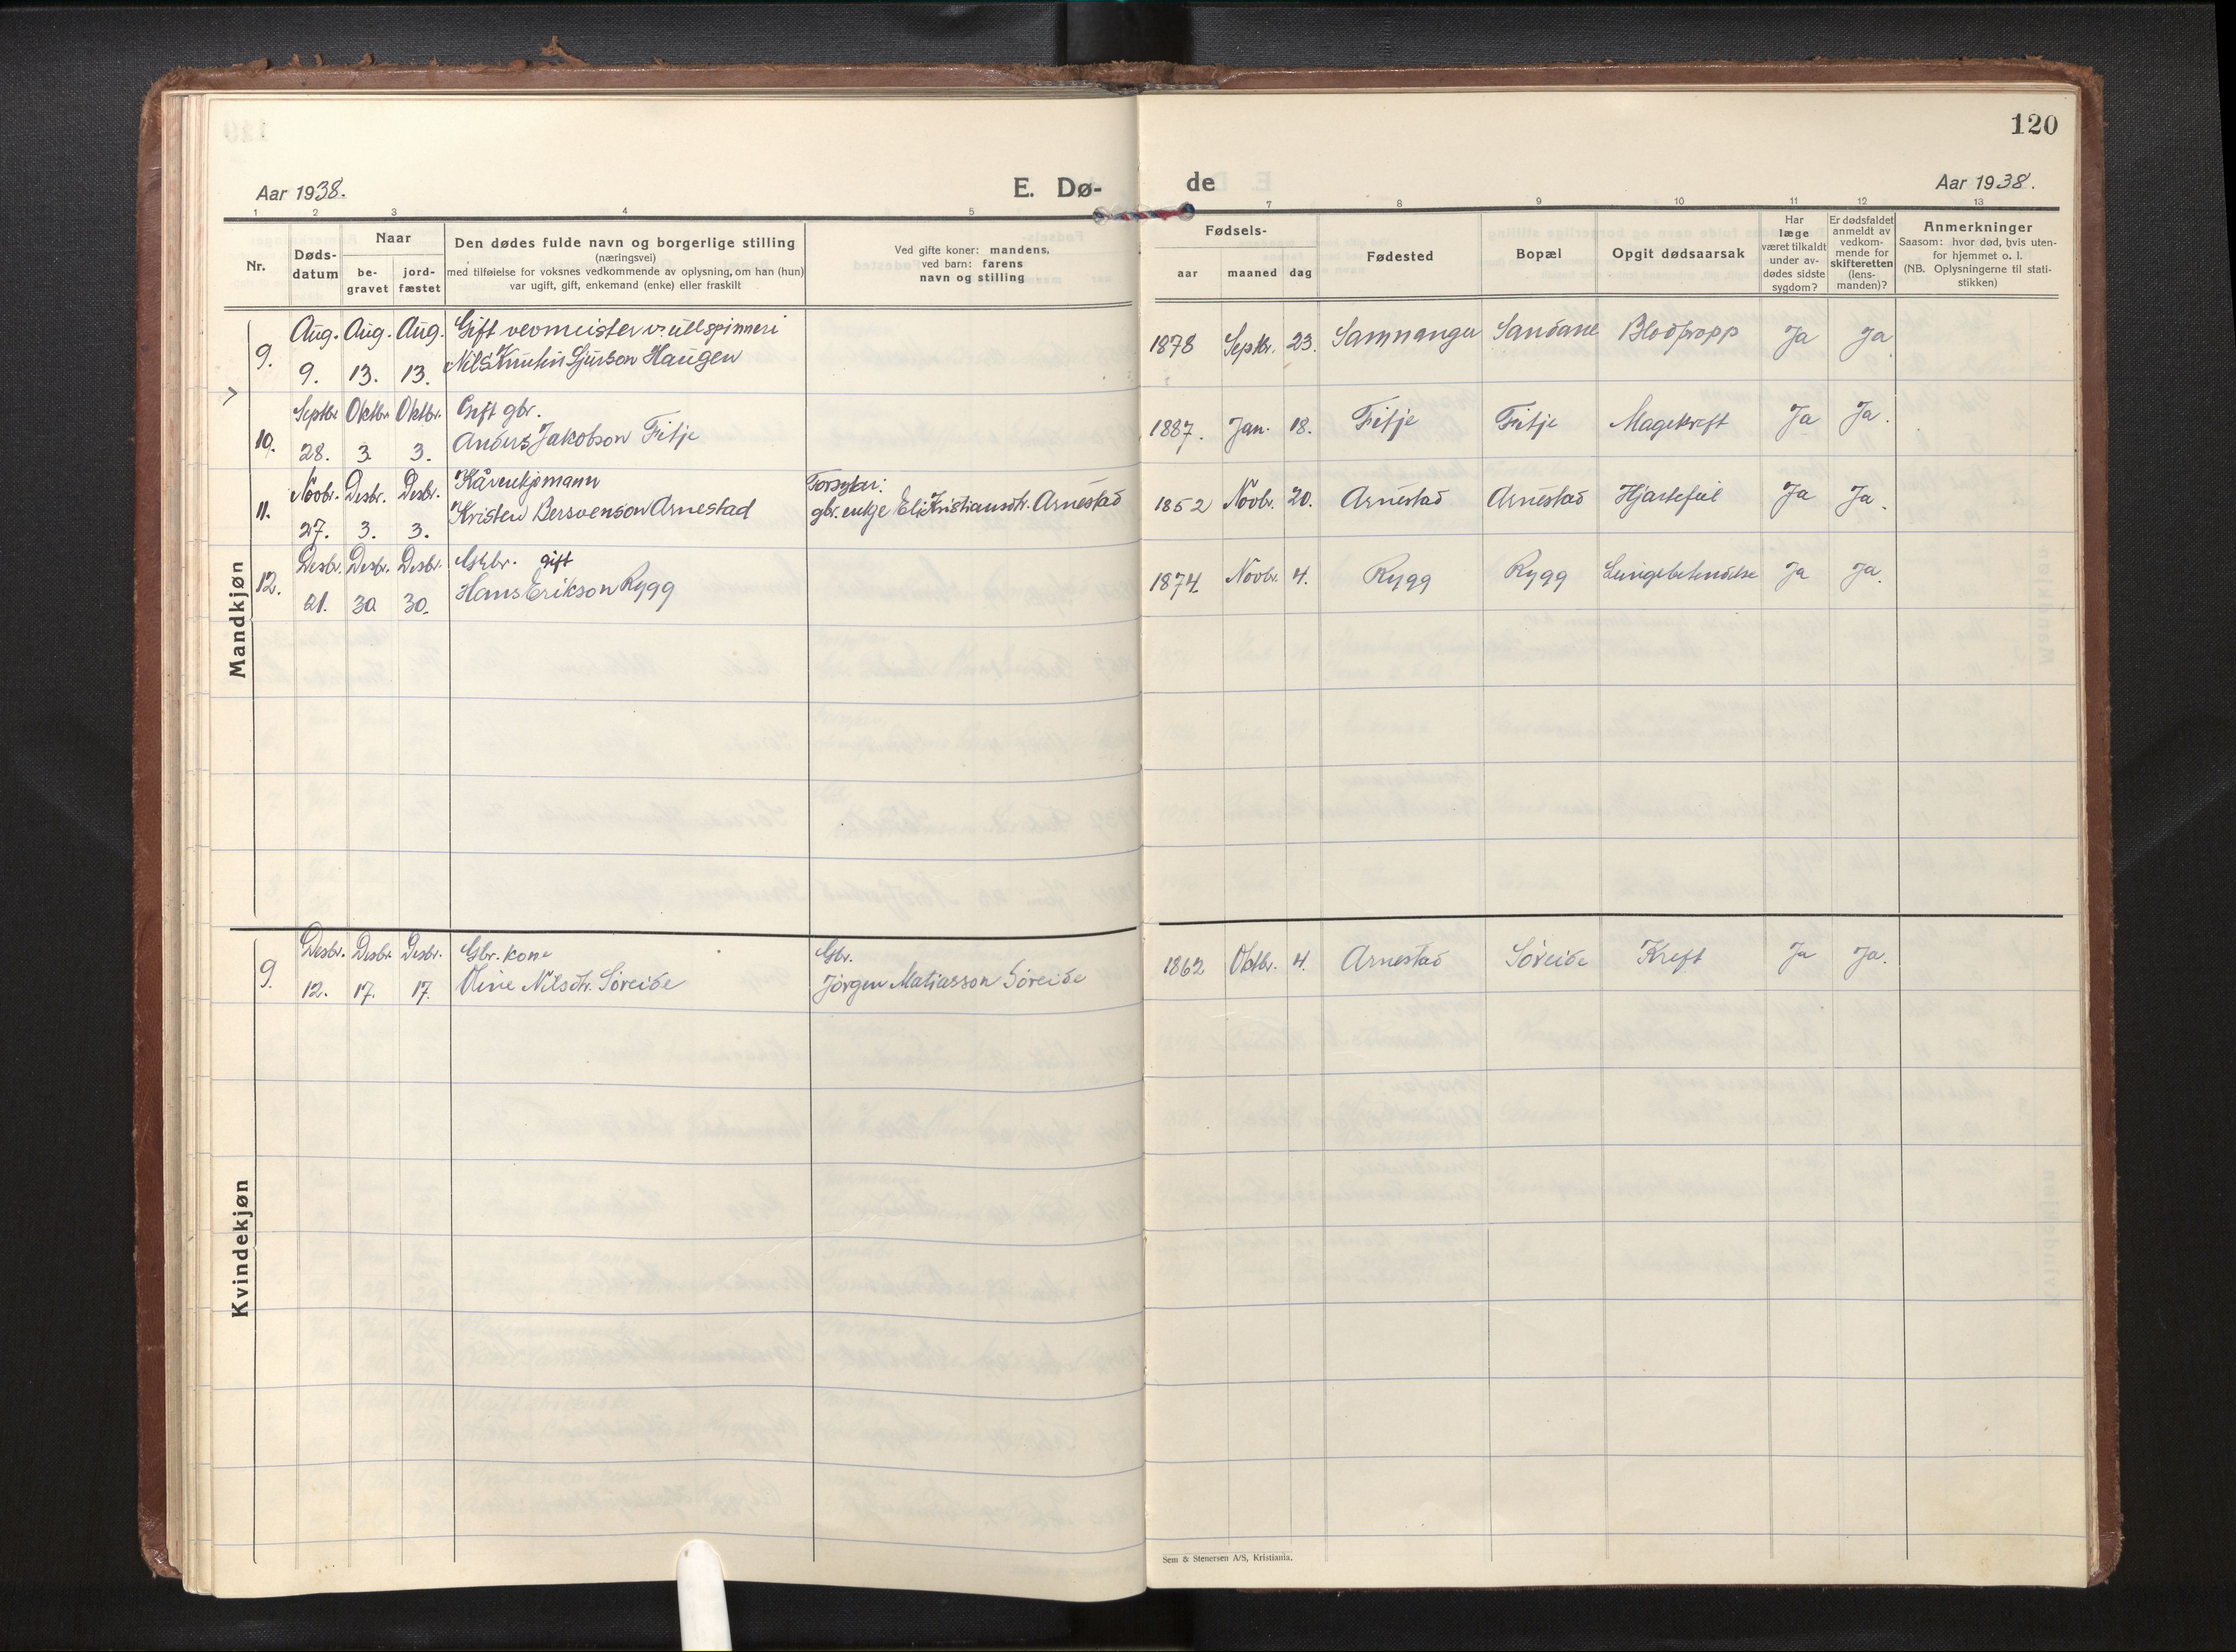 120
Aar 1938.
E. Dø-
de
Aar 1938.
1 2 3 4 5 7 8 9 10 11 12 13
Nr.
Døds-
datum
Naar
be-
gravet
jord-
fæstet
Den dødes fulde navn og borgerlige stilling
(næringsvei)
med tilføielse for voksnes vedkommende av oplysning, om han (hun)
var ugift, gift, enkemand (enke) eller fraskilt
Ved gifte koner: mandens,
ved barn: farens
navn og stilling
Fødsels-
aar maaned dag
Fødested
Bopæl
Opgit dødsaarsak
Har
læge
været tilkaldt
under av-
dødes sidste
sygdom?
Er dødsfaldet
anmeldt av
vedkom-
mende for
skifteretten
(lens-
manden)?
Anmerkninger
Saasom: hvor død, hvis uten-
for hjemmet o. l.
(NB. Oplysningerne til stati-
stikken)
Mandkjøn
Aug. Aug. Aug. Gift vevmeister v. ullspinneri
9. 9. 13. 13. Nils Knuten Sjurson Haugen
1878 Septbr. 23. Samnanger Sandane Blodpropp Ja Ja
Septbr. Oktbr. Oktbr. Gift gbr.
10. 28. 3. 3. Anders Jakobson Fitje
1887. Jan. 18. Fitje Fitje Magekreft Ja Ja.
Novbr. Desbr. Desbr. Kårenkjemann
11. 27. 3. 3. Kristen Bersvenson Arnestad
Forsytar:
gbr. enkje Eli Kristiansdtr. Arnestad
1852 Novbr. 20. Arnestad Arnestad Hjartefeil Ja Ja.
Desbr. Desbr. Desbr. Gbr. gift
12. 21. 30. 30. Hans Erikson Rygg
1874. Novbr. 4. Rygg Rygg Lungebetendelse Ja Ja.
Kvindekjøn
Desbr. Desbr. Desbr. Gbr. kone
9. 12. 17. 17. Oline Nilsdtr. Søreide
Gbr.
Jørgen Matiasson Søreide
1862 Oktbr. 4. Arnestad Søreide Kreft Ja Ja.
Sem & Stenersen A/S, Kristiania.